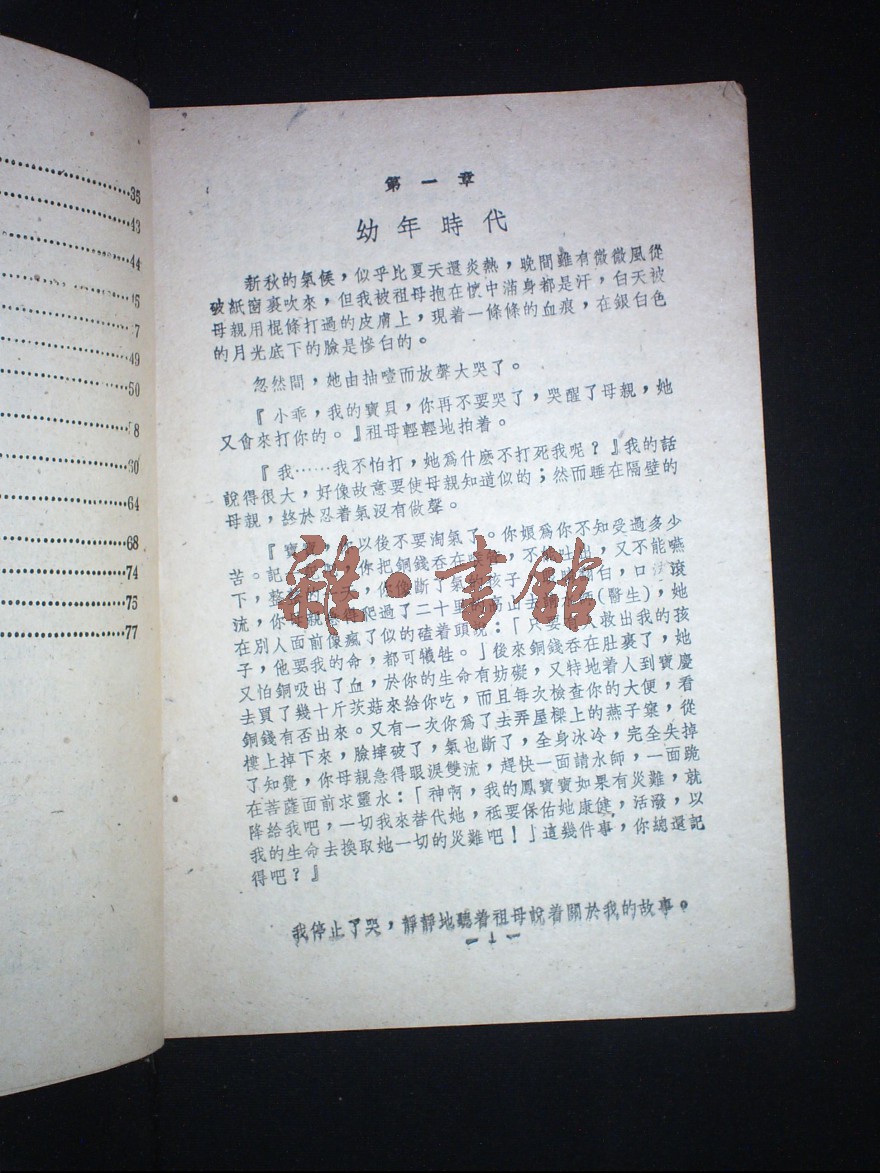 35
43
44
5
7
49
50
8
60
64
68
74
75
77
第一章
幼年時代
新秋的氣候，似乎比夏天還炎熱，晚間雖有微微風從
破紙窗裏吹來，但我被祖母抱在懷中滿身都是汗，白天被
母親用棍條打過的皮膚上，現着一條條的血痕，在銀白色
的月光底下的臉是慘白的。
忽然間，她由抽噎而放聲大哭了。
『小乖，我的寶貝，你再不要哭了，哭醒了母親，她
又會來打你的。』祖母輕輕地拍着。
『我……我不怕打，她爲什麽不打死我呢？』我的話
說得很大，好像故意要使母親知道似的；然而睡在隔壁的
母親，終於忍着氣沒有做聲。
『寶寶，你以後不要淘氣了。你娘爲你不知受過多少
苦。記 你把銅錢吞在喉 ，不 吐出，又不能嚥
下，整 天，你像斷了氣的孩子， 白，口 滾
流，你母親急得爬過了二十里的高山去 師（醫生），她
在別人面前像瘋了似的磕着頭說：「只要 救出我的孩
子，他要我的命，都可犧牲。」後來銅錢吞在肚裏了，她
又怕銅吸出了血，於你的生命有妨礙，又特地着人到寶慶
去買了幾十斤茨菇來給你吃，而且每次檢查你的大便，看
銅錢有否出來。又有一次你爲了去弄屋樑上的燕子窠，從
樓上掉下來，臉摔破了，氣也斷了，全身冰冷，完全失掉
了知覺，你母親急得眼淚雙流，趕快一面請水師，一面跪
在菩薩面前求靈水：「神啊，我的鳳寶寶如果有災難，就
降給我吧，一切我來替代她，祗要保佑她康健，活潑，以
我的生命去換取她一切的災難吧！」這幾件事，你總還記
得吧？』
我停止了哭，靜靜地聽着祖母說着關於我的故事。
—1—
雜·書館